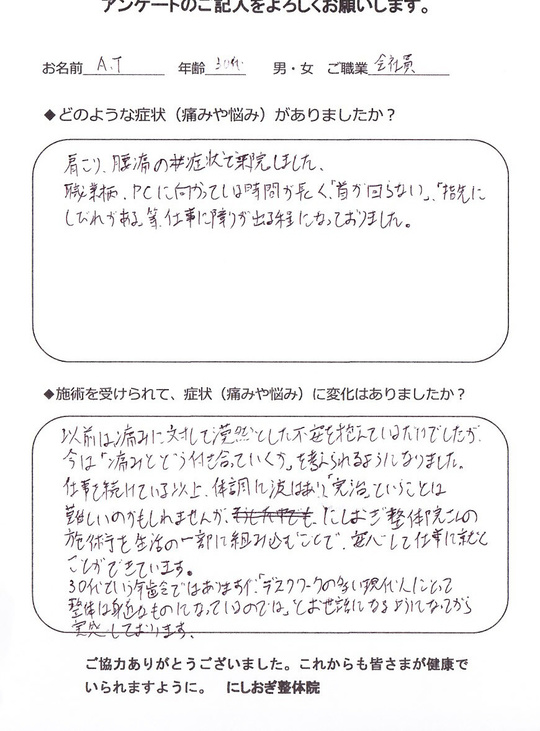 アンケートのご記入をよろしくお願いします。
お名前 A.T 年齢 30代 男・女 ご職業 会社員
◆どのような症状（痛みや悩み）がありましたか？
肩こり、腰痛の症状で来院しました、
職業柄、PCに向かっている時間が長く、「首が回らない」、「指先に
しびれがある」等、仕事に障りが出る程になっておりました。
◆施術を受けられて、症状（痛みや悩み）に変化はありましたか？
以前は痛みに対して漠然とした不安を抱えているだけでしたが、
今は「痛みとどう付き合っていくか」を考えられるようになりました。
仕事を続けている以上、体調に波はあり、「完治」ということは
難しいのかもしれませんが、にしおぎ整体院さんの
施術を生活の一部に組み込むことで、安心して仕事に
ことができています。
30代という年齢ではありますが、「デスクワークの多い現代人にとって
整体は身近なものになっているのでは」とお世話になるようになってから
実感しております。
ご協力ありがとうございました。これからも皆さまが健康で
いられますように。 にしおぎ整体院